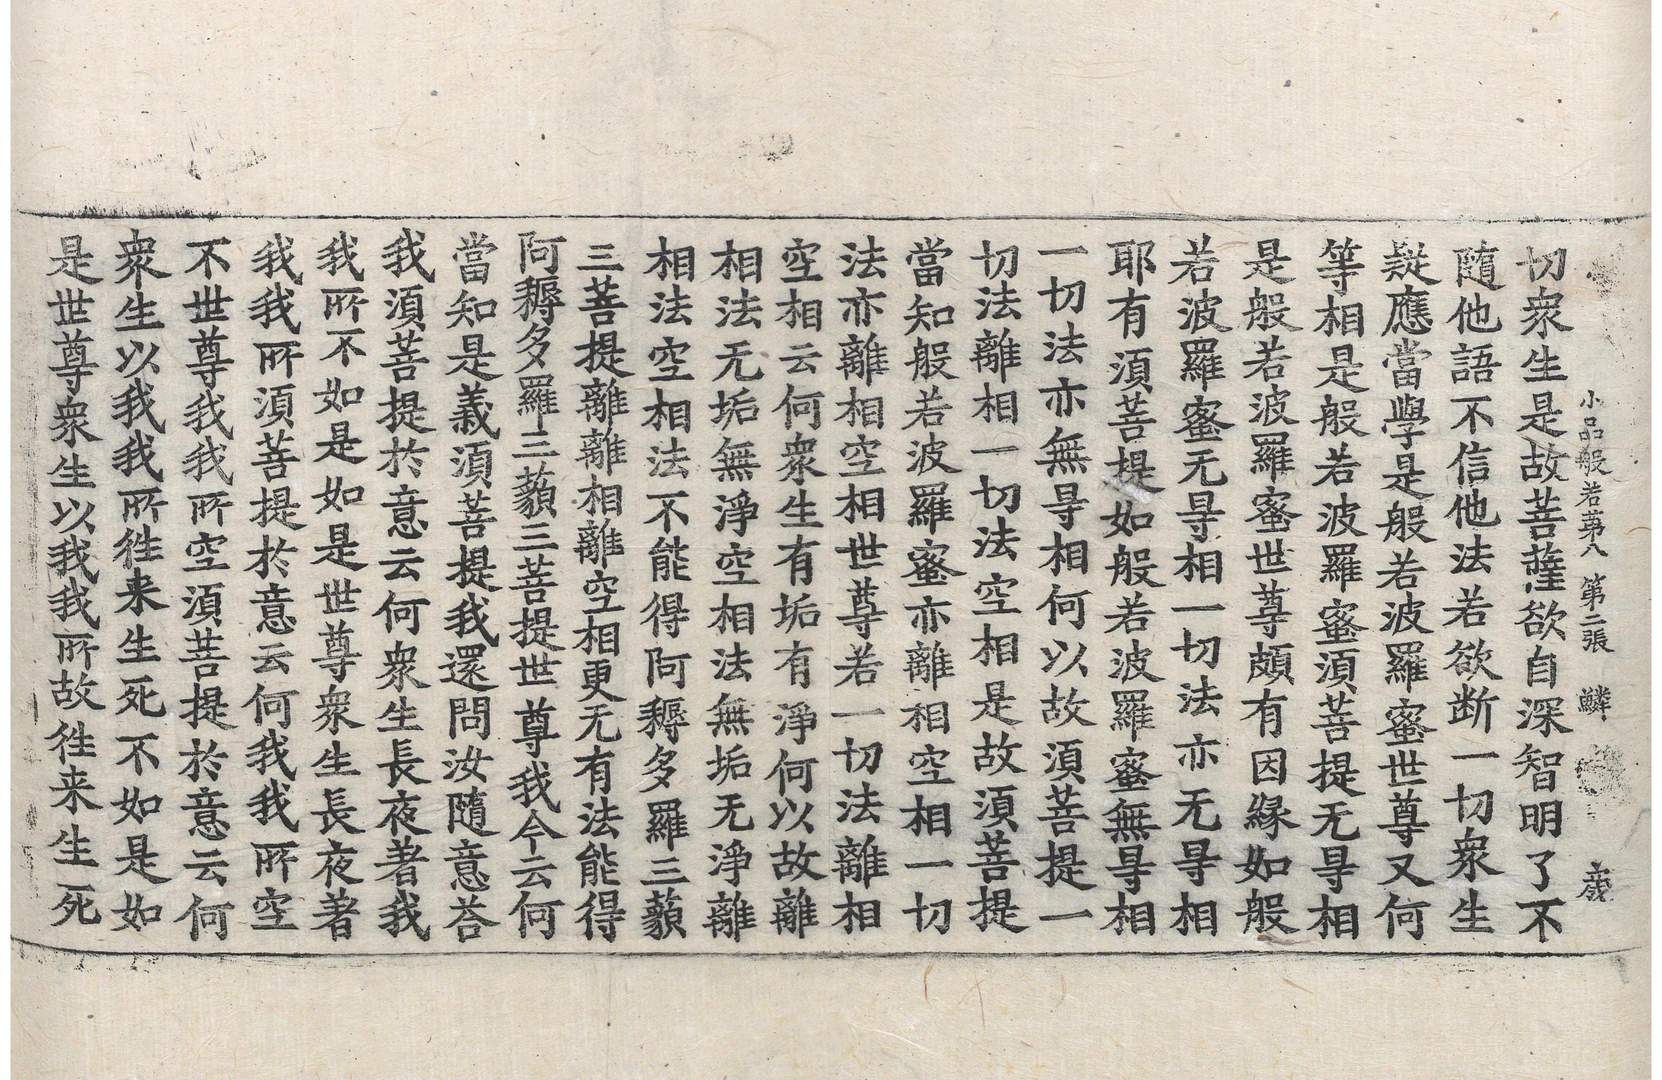 小品般若第八 第二張 鱗
切衆生是故菩薩欲自深智明了不
隨他語不信他法若欲断一切衆生
疑應當學是般若波羅蜜世尊又何
等相是般若波羅蜜須菩提无㝵相
是般若波羅蜜世尊頗有因縁如般
若波羅蜜无㝵相一切法亦无㝵相
耶有須菩提如般若波羅蜜無㝵相
一切法亦無㝵相何以故須菩提一
切法離相一切法空相是故須菩提
當知般若波羅蜜亦離相空相一切
法亦離相空相世尊若一切法離相
空相云何衆生有垢有淨何以故離
相法无垢無淨空相法無垢无淨離
相法空相法不能得阿耨多羅三藐
三菩提離離相離空相更无有法能得
阿耨多羅三藐三菩提世尊我今云何
當知是義須菩提我還問汝隨意荅
我須菩提於意云何衆生長夜著我
我所不如是如是世尊衆生長夜著
我我所須菩提於意云何我我所空
不世尊我我所空須菩提於意云何
衆生以我我所徃来生死不如是如
是世尊衆生以我我所故徃来生死